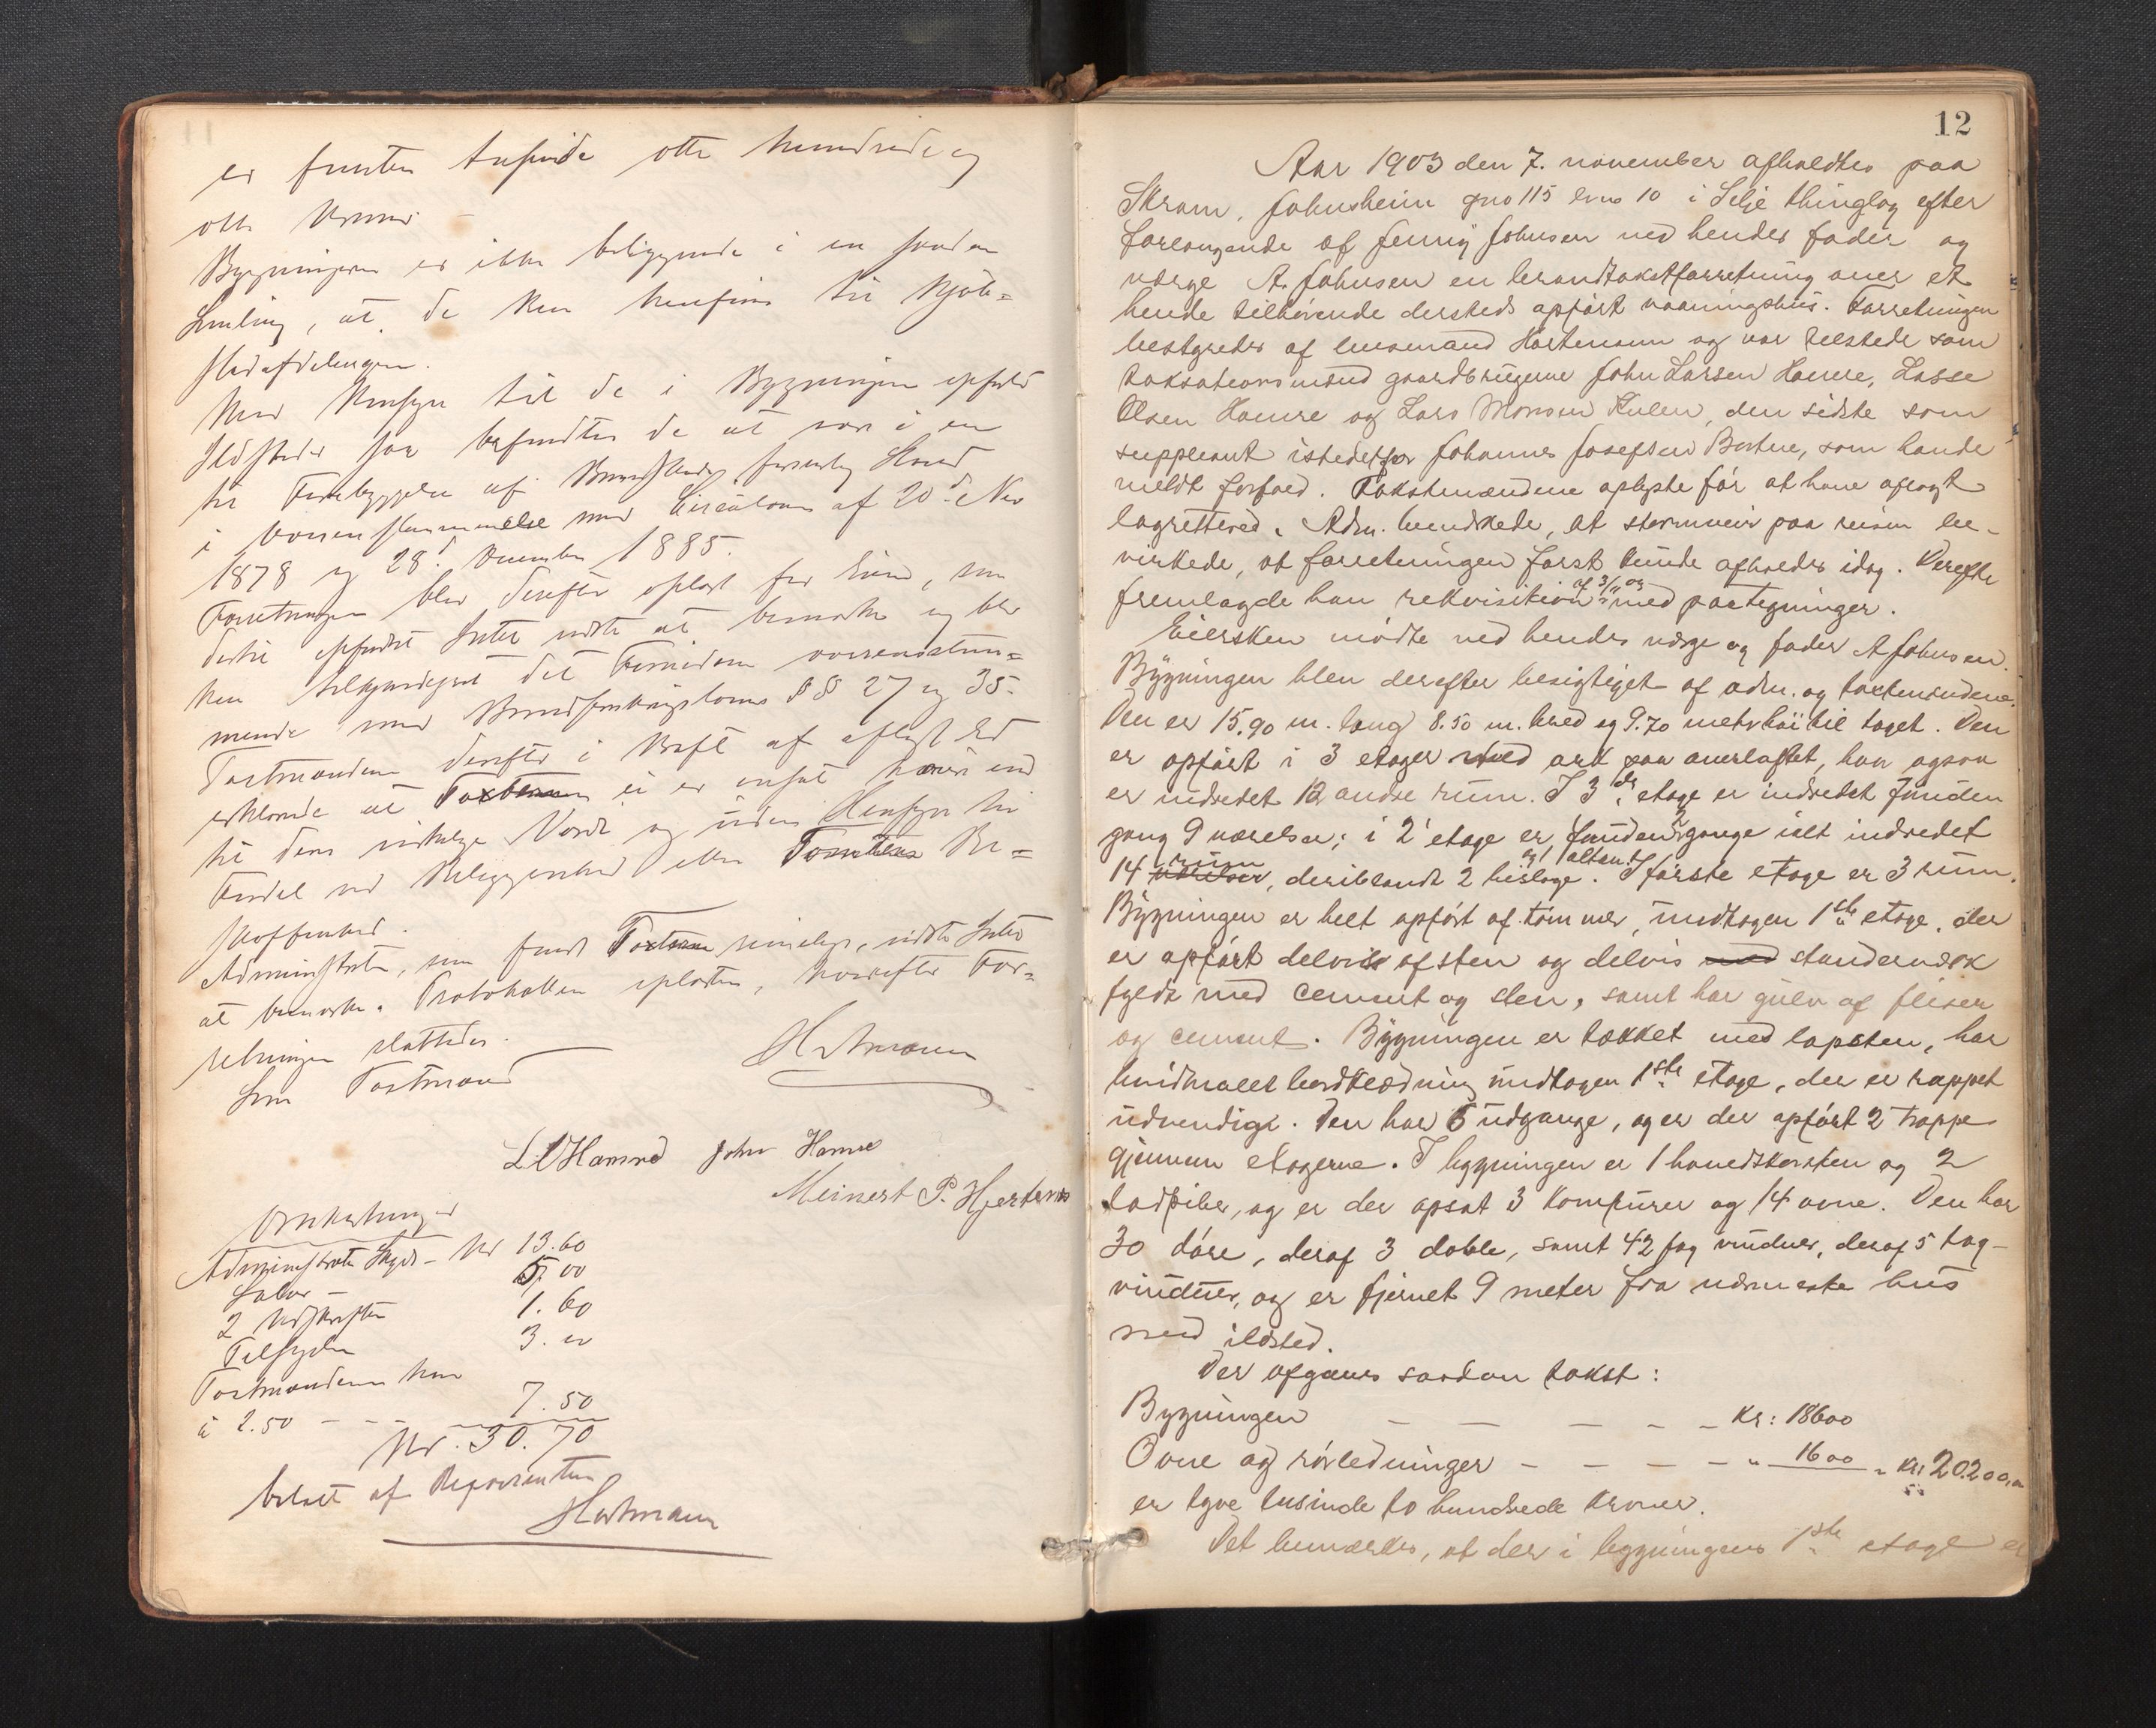 11
er femten tusinde otte hundrede og
otte Kroner.
Bygningerne er ikke beliggende i en saadan
Samling, at de kan henføres til Kjøb=
stadafdelingen.
Med Hensyn til de i Bygningen opførte
Ildsteder saa befandtes de at være i en
til Forebyggelse af Brandskade forsvarlig Stand
i Overensstemmelse med Circulærer af 20de Nov
1878 og 28d December 1885.
Forretningen blev derefter oplæst for Eieren, som
dertil Intet vidste at bemærke og blev
han tilkjendegivet det Fornødne overensstem=
mende med Brandforsikringslovens §§ 27 og 35.
Taxtmændene derefter i Kraft af aflagt Ed
erklærede at Taxterne ei er ansat høiere end
til dens virkelige Værdi og uden Hensyn til
Fordel ved Beliggenhed eller Tomtens Be=
skaffenhed.
Administrator, som fandt Taxterne rimelige, vidste Intet
at bemærke. Protokollen oplæstes, hvorefter For=
retningen sluttedes.
Hartmann
Som Taxtmænd
L L Hamre John Hamre
Meinert P. Hjertenæs
Omkostninger
Administrators Skyds – Kr 13.60
Salær – 5.00
2 Udskrifter 1.60
Tilsyn 3. 00
Taxtmændene hver
à 2.50 – – – 7.50
Kr. 30.70
betalt af Rekvirenten
Hartmann
12
Aar 1903 den 7. november afholdtes paa
Skram, Johnsheim gno 115 bno 10 i Selje thinglag efter
forlangende af Jenny Johnsen ved hendes fader og
værge A. Johnsen en brandtakstforretning over et
hende tilhørende dersteds opført vaaningshus. Forretningen
bestyredes af lensmand Hartmann og var tilstede som
taksationsmænd gaardbrugerne John Larsen Hamre, Lasse
Olsen Hamre og Lars Monsen Kulen, den sidste som
suppleant istedetfor Johannes Josefsen Bortne, som havde
meldt forfald. Takstmændene oplyste før at have aflagt
lagretteed. Adm. bemærkede, at stormveir paa reisen be-
virkede, at forretningen først kunde afholdes idag. Derefter
fremlagde han rekvisition af 3/11 03 med paategninger.
Eiersken mødte ved hendes værge og fader A Johnsen.
Bygningen blev derefter besigtiget af adm. og taxtmændene.
Den er 15.90 m. lang 8.50 m. bred og 9.70 meter høi til taget. Den
er opført i 3 etager med ark paa overloftet, hvor ogsaa
er indredet 12 andre rum. I 3de etage er indredet foruden
gang 9 værelser; i 2' etage er, foruden 2 gange ialt indredet
14 værelser rum, deriblandt 2 bislage. og 1 altan. I første etage er 3 rum.
Bygningen er helt opført af tømmer, undtagen 1ste etage, der
er opført delvis af sten og delvis med standerværk
fyldt med cement og sten, samt har gulv af fliser
og cement. Bygningen er tækket med lapsten, har
hvidmalet bordklædning undtagen 1ste etage, der er rappet
udvendigt. Den har 6 udgange, og er der opført 2 trappe
gjennem etagerne. I bygningen er 1 hovedskorsten og 2
ladpiber, og er der opsat 3 komfurer og 14 ovne. Den har
30 døre, deraf 3 doble, samt 42 fag vinduer, deraf 5 tag-
vinduer, og er fjernet 9 meter fra nærmeste hus
med ildsted.
Der afgaves saadan takst:
Bygningen – – – – – Kr: 18600
Ovne og rørledninger – – – – – " 1600 " Kr. 20.200,00
er tyve tusinde to hundrede kroner.
Det bemærkes, at der i bygningens 1ste etage er